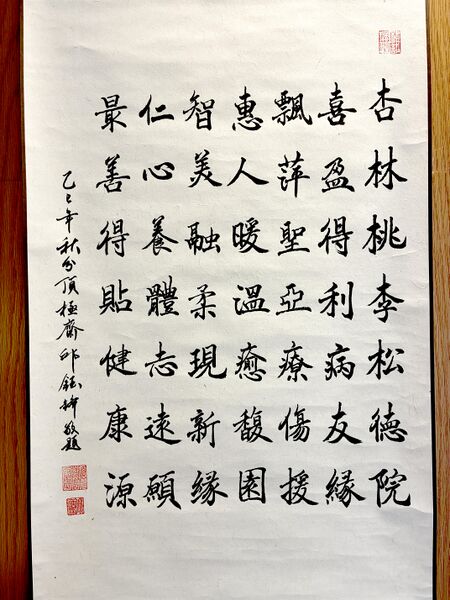 杏林桃李松德院
喜盈得利病友緣
飄萍聖亞療傷援
惠人暖溫癒馥園
智美融柔現新緣
仁心養體志遠願
最善得貼健康源
乙巳年秋分頂極齋邱鈺 敬題